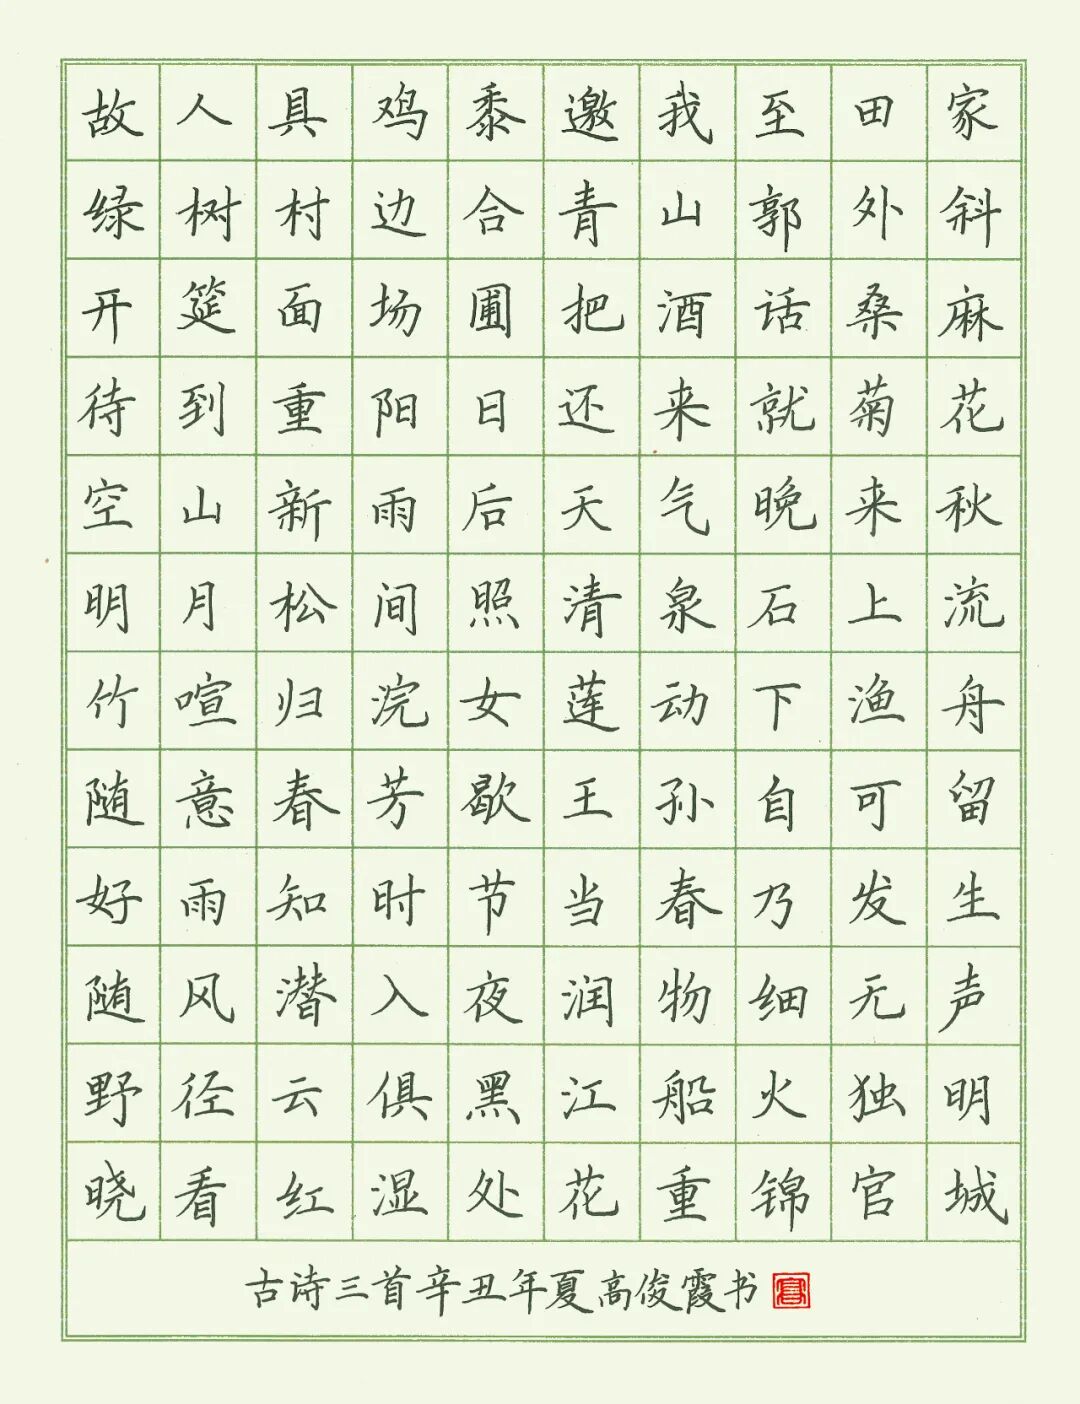 故人具鸡黍邀我至田家
绿树村边合青山郭外斜
开筵面场圃把酒话桑麻
待到重阳日还来就菊花
空山新雨后天气晚来秋
明月松间照清泉石上流
竹喧归浣女莲动下渔舟
随意春芳歇王孙自可留
好雨知时节当春乃发生
随风潜入夜润物细无声
野径云俱黑江船火独明
晓看红湿处花重锦官城
古诗三首辛丑年夏高俊霞书